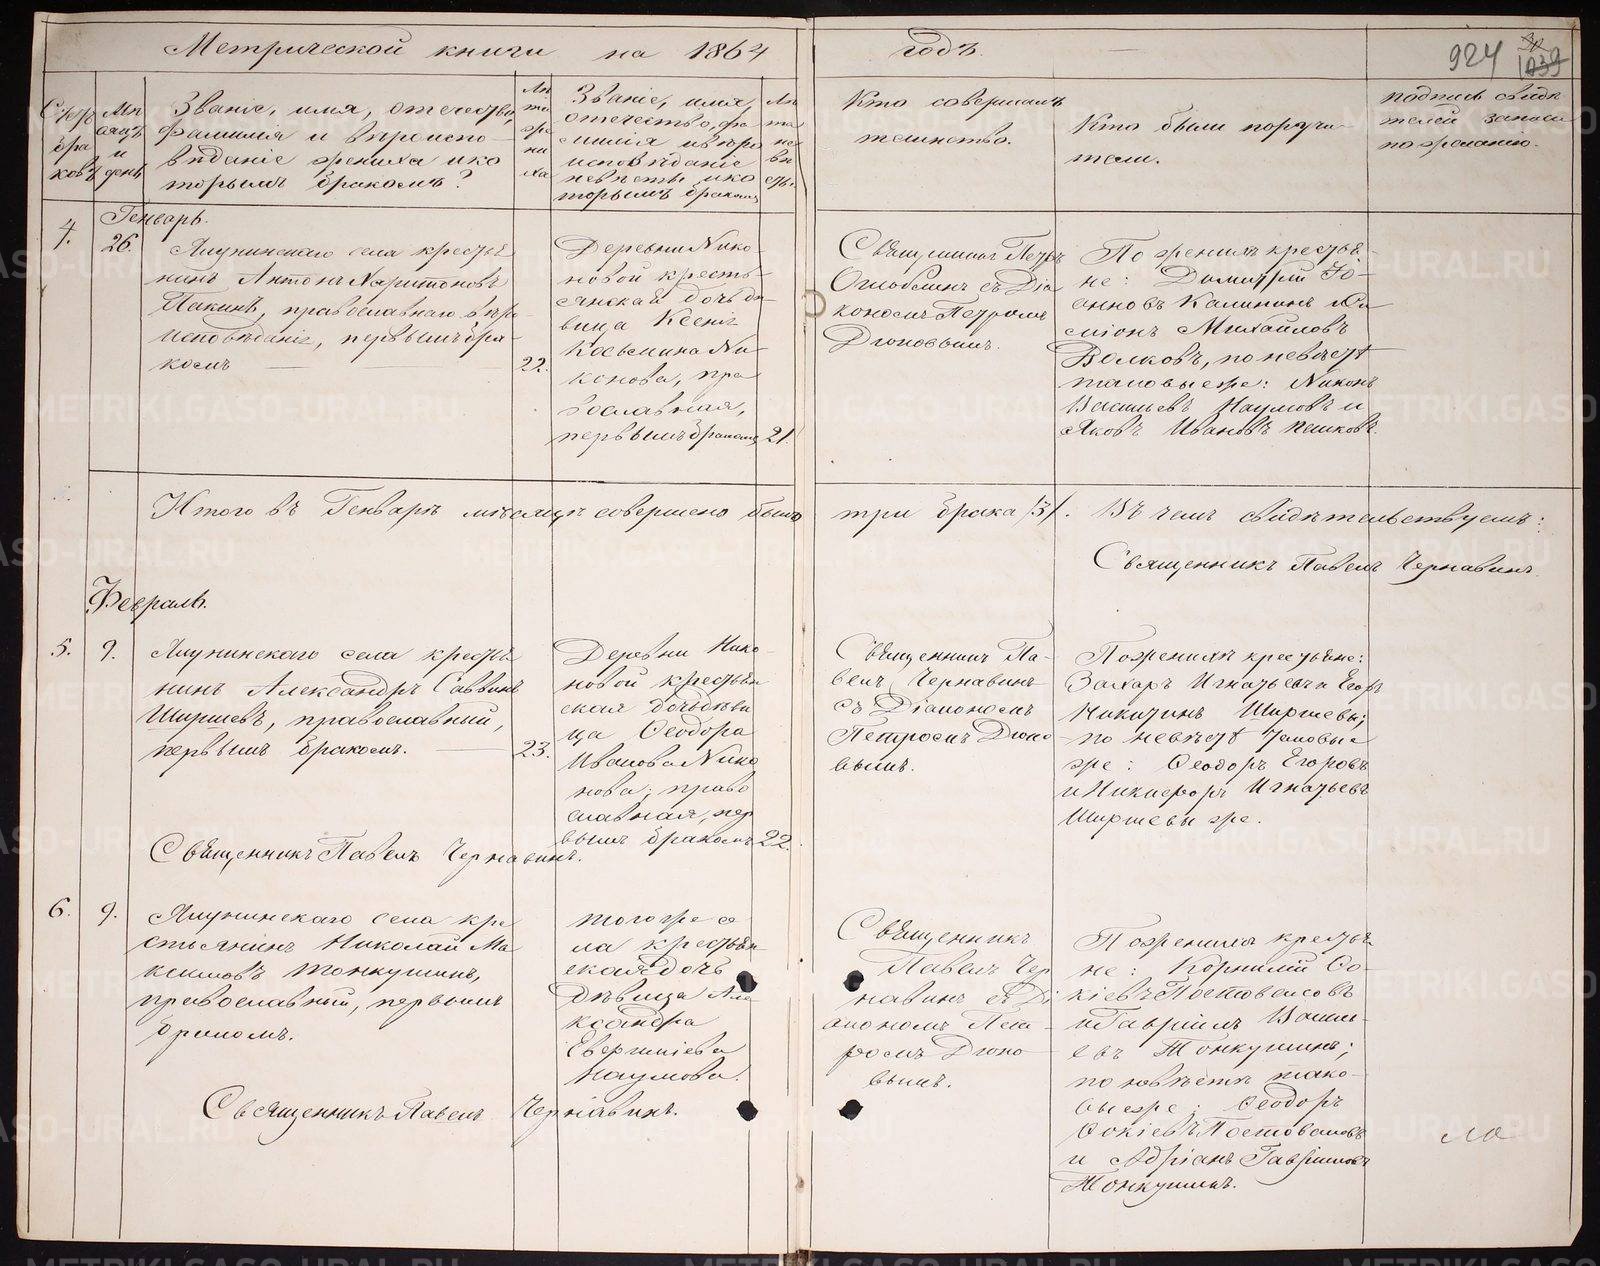 Метрической книги на 1864 годъ.
924
1039
Счетъ браковъ
Мѣсяцъ и день
Званіе, имя, отечество,
фамилія и вѣроиспо-
вѣданіе жениха и ко
торымъ бракомъ?
Лѣта жениха
Званіе, имя,
отечество, фа
милія и вѣро
исповѣданіе
невѣсты и ко
торымъ бракомъ
Лѣта невѣсты
Кто совершалъ
таинство.
Кто были поручи-
тели.
подпись свидѣ
телей записи
по желанію.
4.
Генварь.
26.
Ялунинскаго села крестья
нинъ Антонъ Харитоновъ
православнаго вѣро
исповѣданія, первымъ бра-
комъ
22.
Деревни Нико-
новой кресть-
янская дочь дѣ-
вица Ксенія
Косьмина Ни-
конова, пра
вославная,
первымъ бракомъ
21.
Священникъ Петръ
съ Діа
кономъ Петромъ
Дюновымъ.
По женихѣ крестья-
не: Димитрій Іо-
анновъ Калининъ и
Михайловъ
Волковъ, по невѣстѣ
таковые же: Никонъ
Васильевъ Наумовъ и
Яковъ Ивановъ Пешковъ.
Итого въ Генварѣ мѣсяцѣ совершено было три брака /3/. Въ чемъ свидѣтельствуемъ:
Священникъ Павелъ Чернавинъ
Февраль.
5.
9.
Ялунинскаго села крестья
нинъ Александръ Саввинъ
Ширшевъ, православный,
первымъ бракомъ.
23.
Деревни Нико-
новой крестьян
ская дочь дѣви
ца Ѳеодора
Иванова Нико
нова; право
славная, пер
вымъ бракомъ
22.
Священникъ Па-
велъ Чернавинъ
съ Діакономъ
Петромъ Дюно
вымъ.
По женихѣ крестьяне:
Захаръ Игнатьевъ и Егоръ
Никитинъ Ширшевы;
по невѣстѣ таковые
же: Ѳеодоръ Егоровъ
и Никифоръ Игнатьевъ
Ширшевы же.
Священникъ Павелъ Чернавинъ.
6.
9.
Ялунинскаго села кре
стьянинъ Николай Ма
ксимовъ Тонкушинъ,
православный, первымъ
бракомъ.
того же се
ла крестьян
ская дочь
дѣвица Але
ксандра
Наумова.
Священникъ
Павелъ Чер
навинъ съ Ді
акономъ Пет-
ромъ Дюно
вымъ.
По женихѣ крестья
не: Корнилій Ѳо-
кіевъ Постоваловъ
и Гавріилъ Василь-
евъ Тонкушинъ;
по невѣстѣ тако-
вые же: Ѳеодоръ
Ѳокіевъ Постоваловъ
и Адріанъ Гавріиловъ
Тонкушинъ.
Священникъ Павелъ Чернавинъ.
METRIKI.GASO-URAL.RU